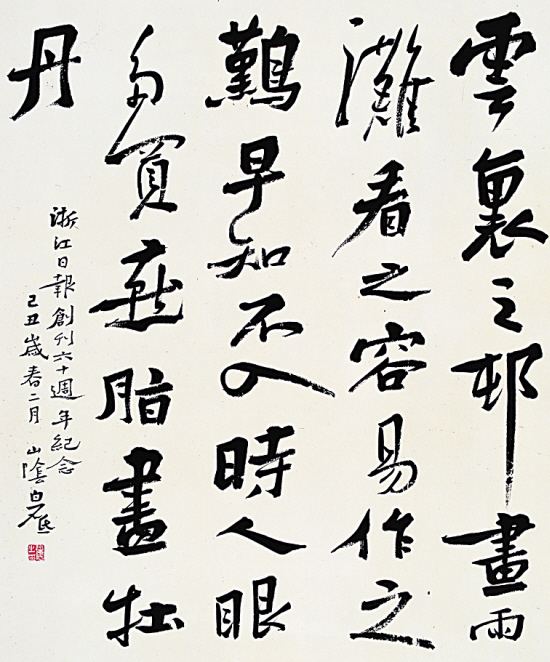 雲裏之邨畫雨
灘看之容易作之
難早知不入時人眼
多買燕脂畫牡
丹
浙江日報創刊六十週年紀念
己丑歲春二月 山陰白砥